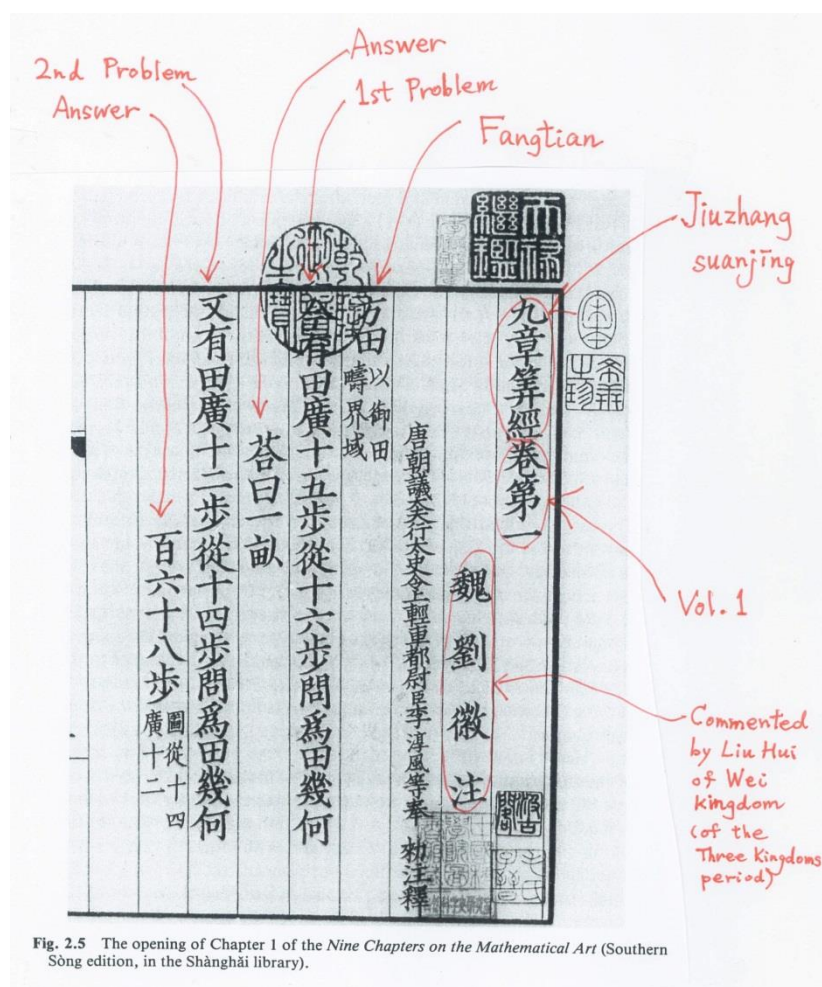 Answer
2nd Problem
Answer
1st Problem
Fangtian
Jiuzhang
suanjīng
Vol. 1
Commented
by Liu Hui
of Wei
kingdom
(of the
Three Kingdoms
period)
天祿
繼鑑
宋本
希世
之珍
九章筭經卷第一
魏劉徽注
唐朝議大夫行太史令上輕車都尉臣李淳風等奉 勑注釋
方田 以御田
疇界域
今有田廣十五步從十六步問爲田幾何
荅曰一畝
又有田廣十二步從十四步問爲田幾何
百六十八步 圖從十四
廣十二
汲古
閣
毛氏
子晉
Fig. 2.5 The opening of Chapter 1 of the Nine Chapters on the Mathematical Art (Southern
Sòng edition, in the Shànghǎi library).